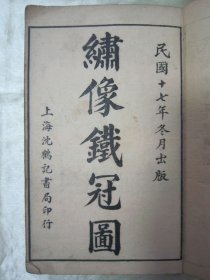 民國十七年冬月出版
繡像鐵冠圖
上海沈鶴記書局印行